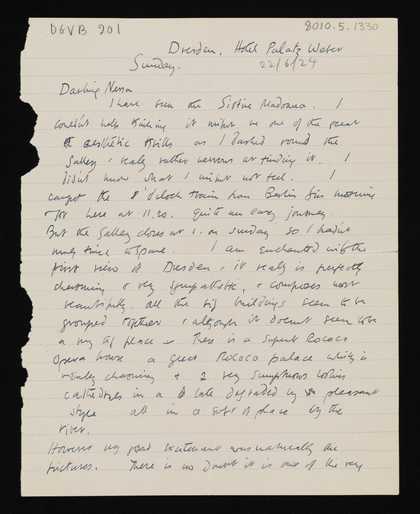 DGVB 201
8010.5.1330
Dresden, Hotel Palatz Weber
Sunday. 22/6/24
Darling Nessa
I have seen the Sistine Madonna. I
couldn't help thinking it might be one of the great
aesthetic thrills as I dashed round the
Gallery & really rather nervous at finding it. I
didn't know what I might not feel. I
caught the 8 o'clock train from Berlin this morning
& got here at 11.20. Quite an easy journey.
But the Gallery closes at 1. on Sunday so I hadn't
much time to spare. I am enchanted with the
first view of Dresden, it really is perfectly
charming & very sympathetic, & composes most
beautifully. All the big buildings seem to be
grouped together & although it doesn't seem to be
a very big place - There is a superb Rococo
Opera house a great Rococo palace which is
really charming & 2 very sumptuous looking
cathedrals in a late degraded but pleasant
style all in a sort of place by the
river.
However my great excitement was naturally the
pictures. There is no doubt it is one of the very